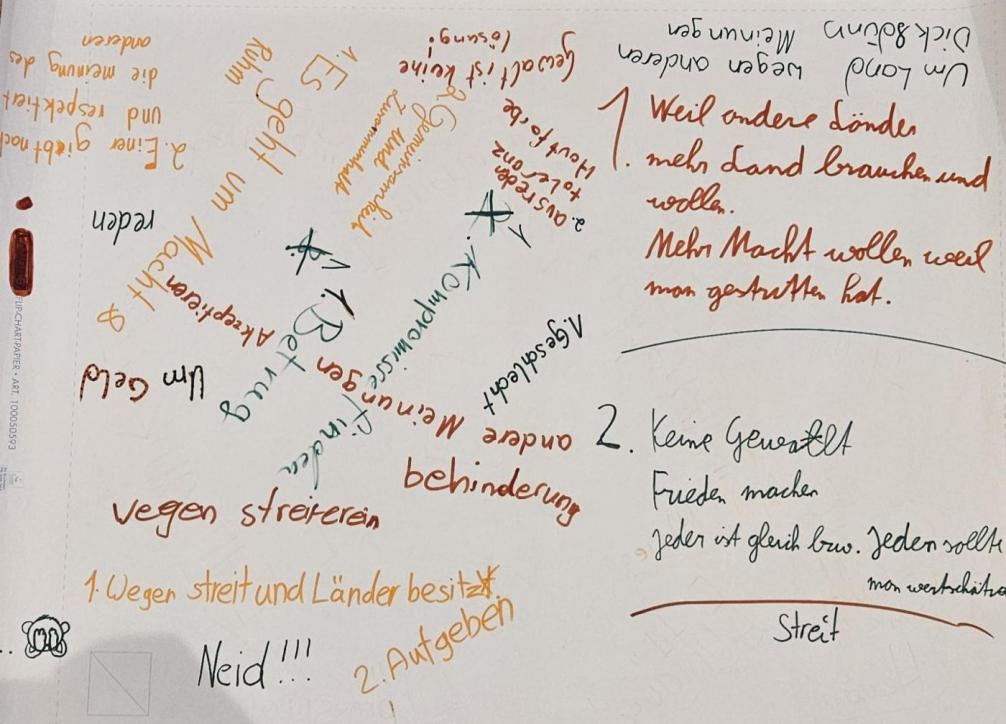 Um Land wegen anderen
Meinungen
1. Weil andere Länder
mehr Land brauchen und
wollen.
Mehr Macht wollen weil
man gestritten hat.
2. Keine Gewallt
Frieden machen
Jeder ist gleich bzw. Jeden sollte
man wertschätze
Streit
Gewalt ist keine
lösung!
2. Gemeinsamheit
und
Zusammenhalt
2. ausreden
toleranz
Hautfarbe
1. Es
geht um
Macht &
Ruhm
2. Einer giebt nach
und respektiert
die meinung des
anderen
reden
Um Geld
Akzeptieren
1. Betrug
1. Kompromisse finden
1. geschlecht
andere Meinungen
behinderung
vegen streiterein
1. Wegen streit und Länder besitz
2. Aufgeben
Neid!!!
FLIPCHARTPAPIER • ART. 100050593